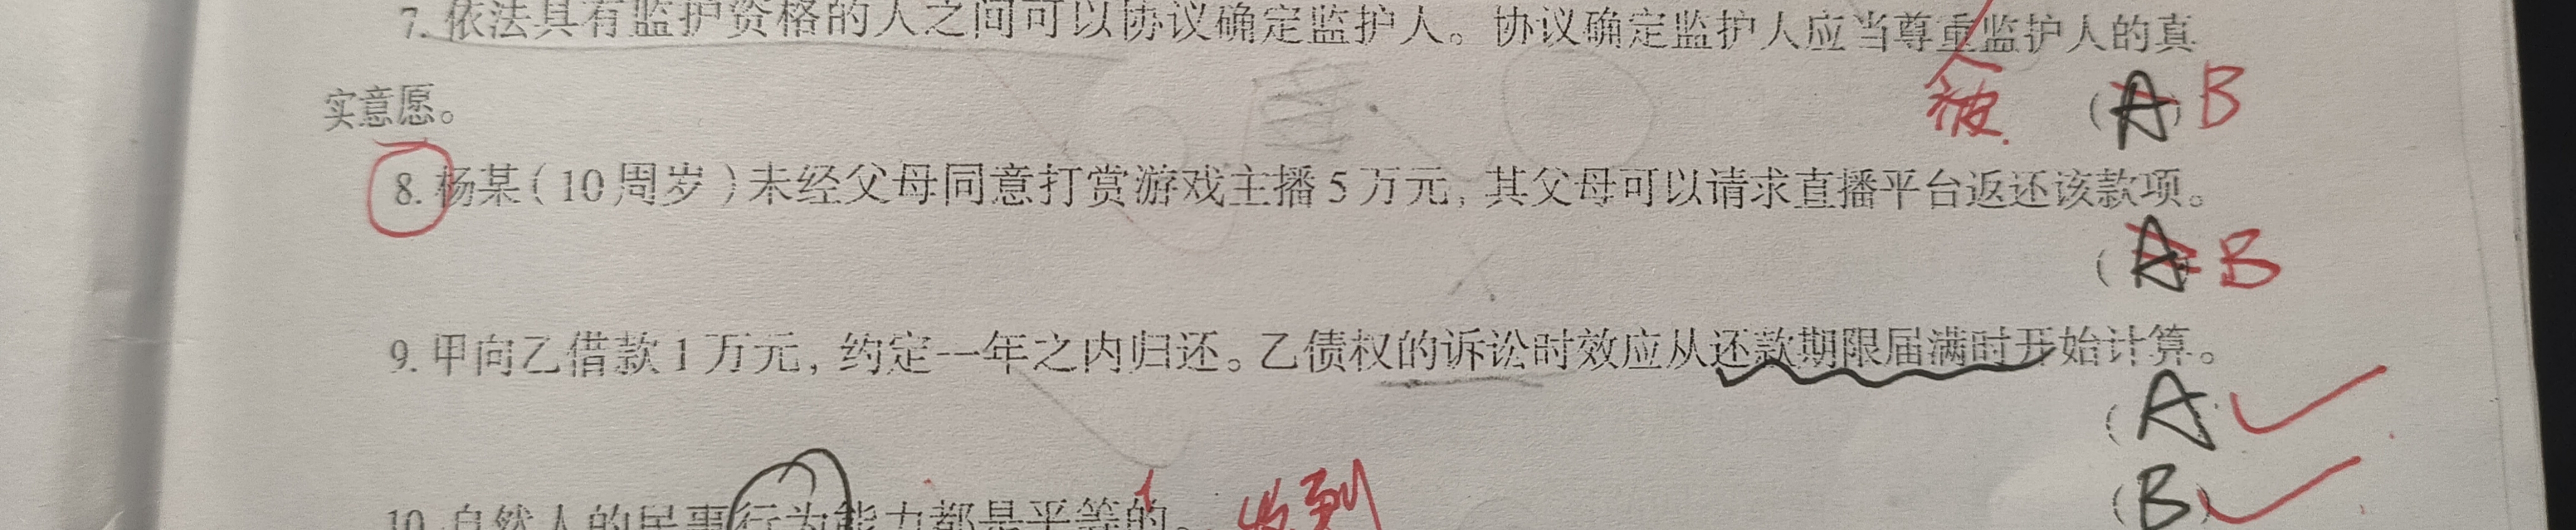 7. 依法具有监护资格的人之间可以协议确定监护人。协议确定监护人应当尊重监护人的真
被
实意愿。 (A) B
8. 杨某(10周岁)未经父母同意打赏游戏主播5万元,其父母可以请求直播平台返还该款项。
(A) B
9. 甲向乙借款1万元,约定一年之内归还。乙债权的诉讼时效应从还款期限届满时开始计算。
(A)
(B)
10. 自然人的民事行为能力都是平等的。